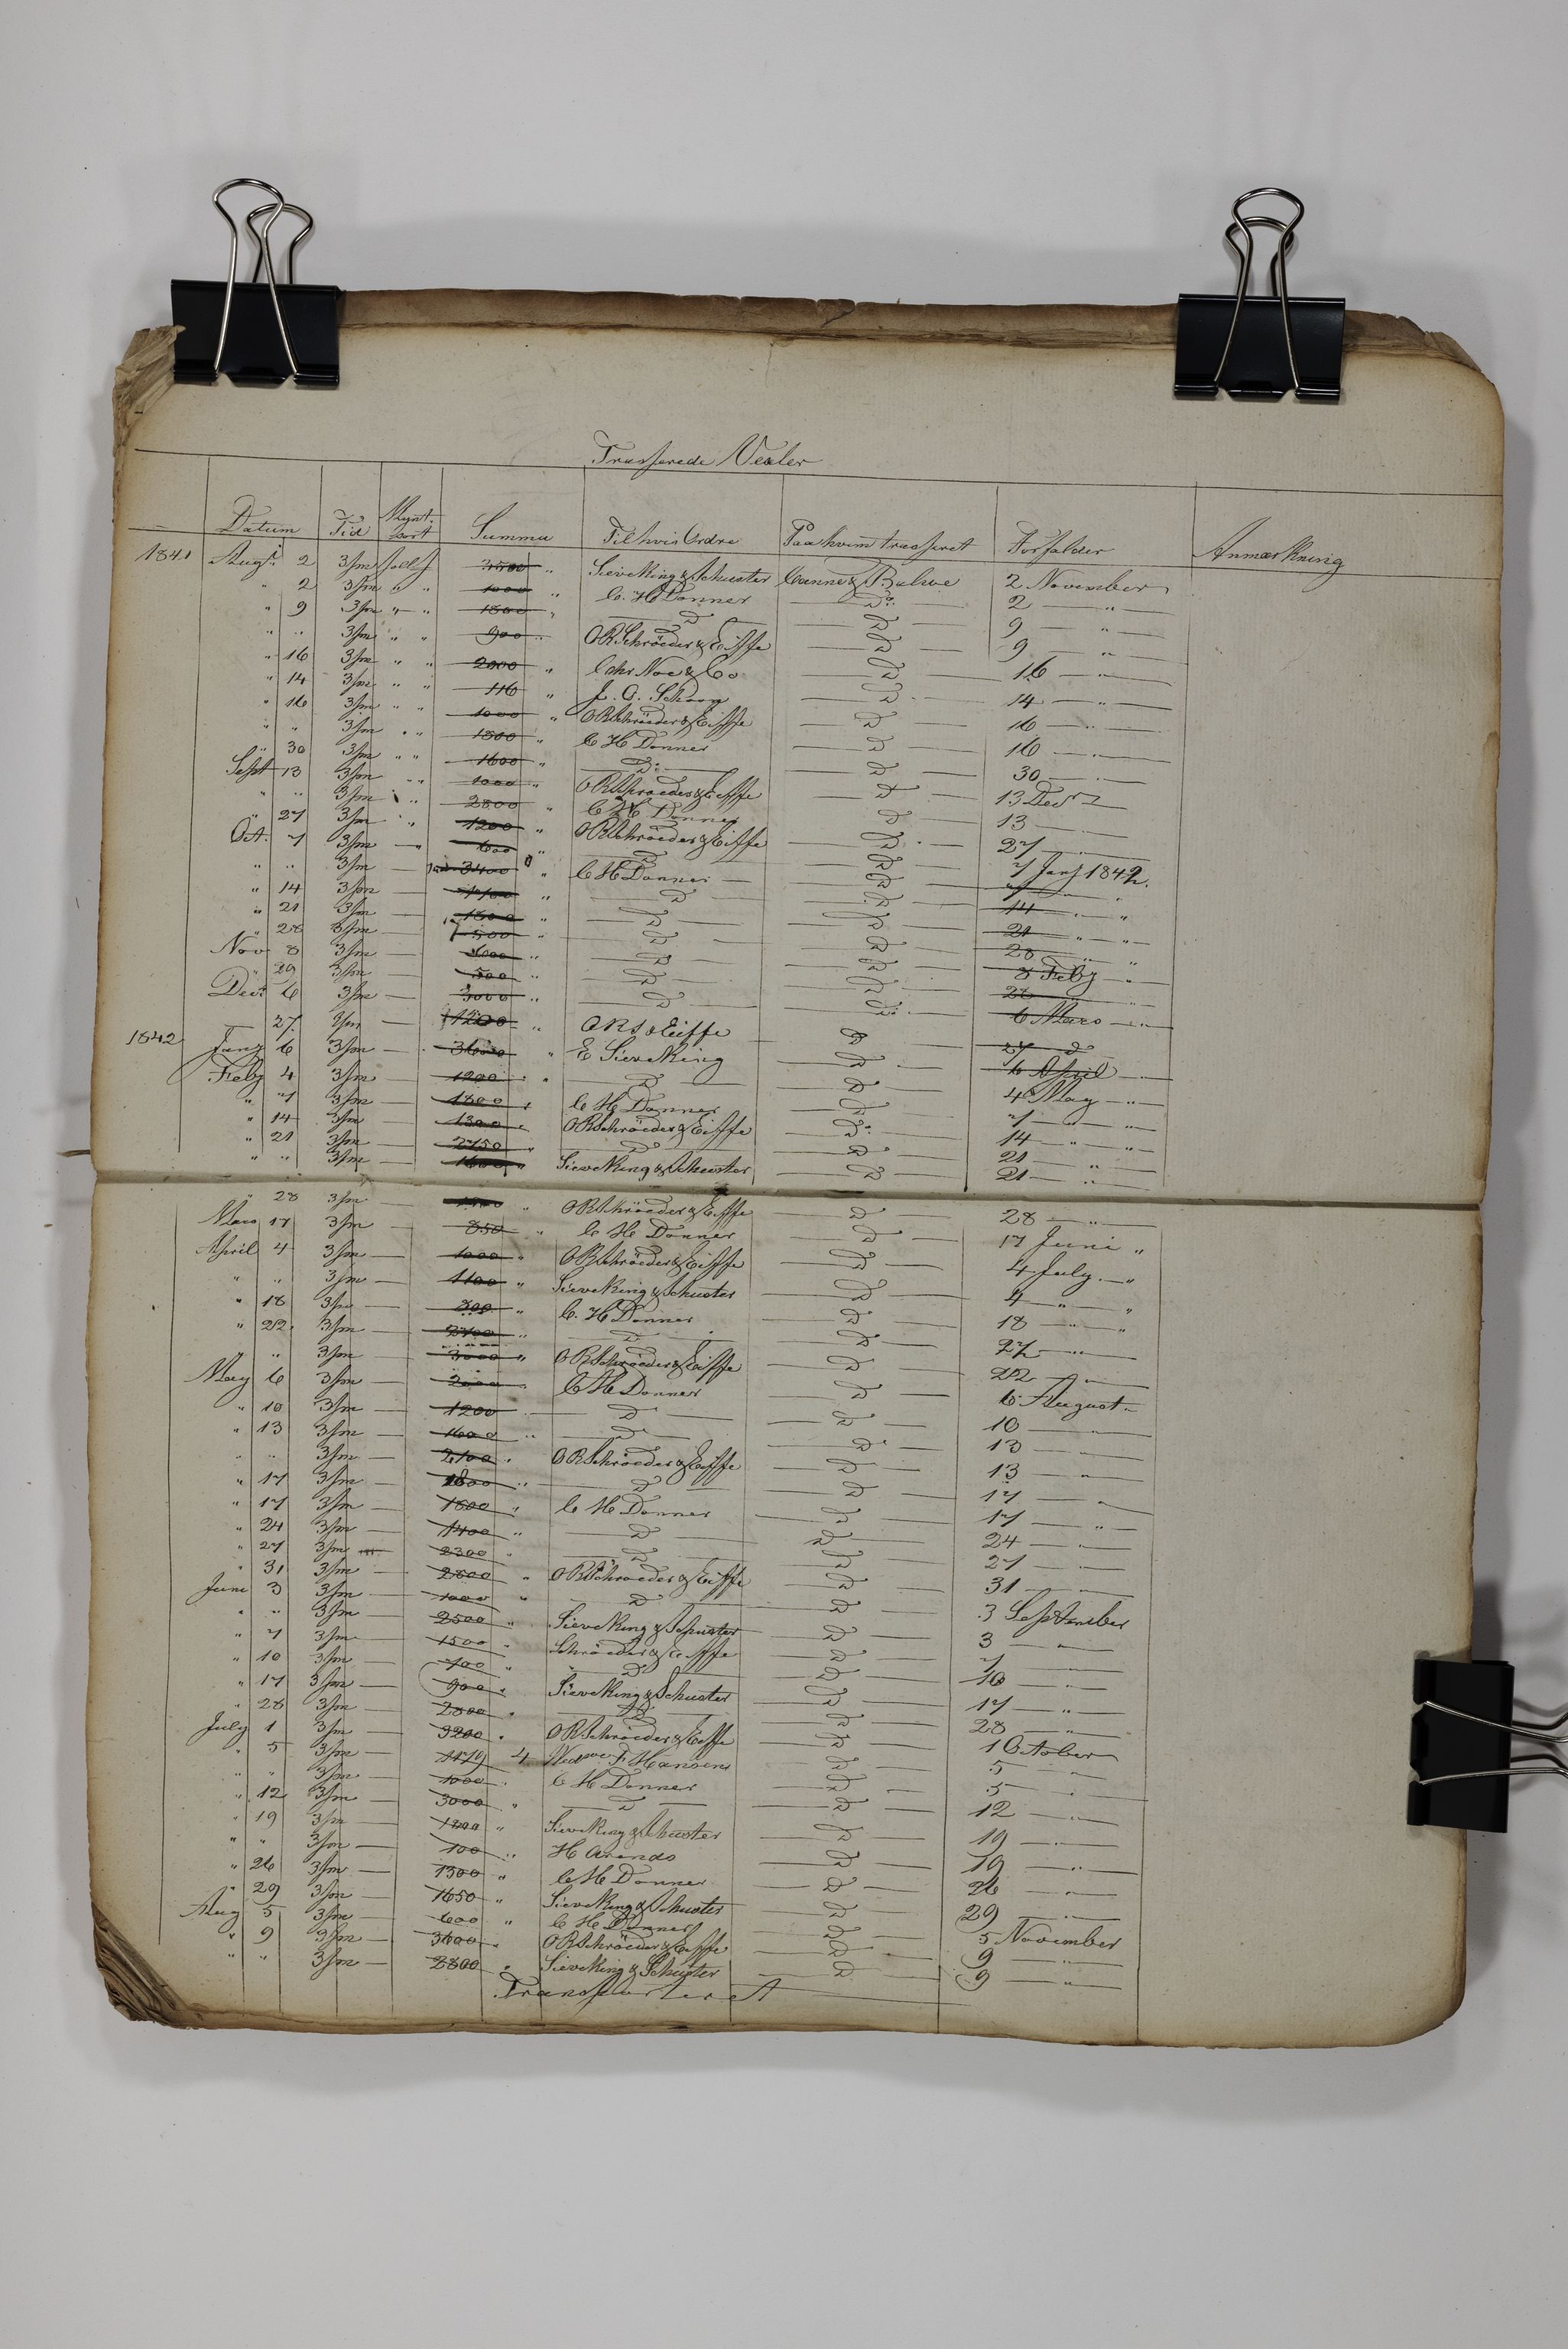 Trasserede Vexler
Datum Tid Mynt-sort Summa Til hvis Ordre Paa hvem trasseret Forfalder Anmærkning
1841 Augt. 2 3/m 3500 " Sieveking & Schuster 2 November
" 2 3/m " " 1000 " C. H. Donner Do. 2 — " —
" 9 3/m " " 1800 " — D — — D — 9 — " —
" " 3/m " " 900 " O R Schröder & Eiffe — D — 9 — " —
" 16 3/m " " 2000 " — D — 16 — " —
" 14 3/m " " 116 " — D — 14 — " —
" 16 3/m " " 1000 " O R Schröder & Eiffe — D — 16 — " —
" " 3/m " " 1800 " C H Donner — D — 16 — " —
" 30 3/m " " 1600 " — D: — — D — 30 — " —
Sept 13 3/m " " 1000 " O R Schroeder & Eiffe — D — 13 Decr
" " 3/m " " 2800 " C H Donner — D — 13 — " —
" 27 3/m " " 1200 " O R Schröder & Eiffe — D — 27 — " —
Oct. 7 3/m — 600 " — D — — D — 7 Jany 1842.
" " 3/m — 3400 " C H Donner — — D — " "
" 14 3/m — 1100 " — D — — D — 14 " "
" 21 3/m — 1800 " — D — — D — 21 " "
" 28 3/m — 500 " — D — — D — 28 " "
Nov 8 3/m — " — D — — D — 8 Feby "
" 29 3/m — 500 " — D — — D — "
Decr 6 3/m — 3000 " — D — — D — 6 Marc "
27 3/m — 1200 " O R S & Eiffe D 27 D
1842 Jany 6 3/m — 3600 " E Sieveking — D — 6 April "
Feby 4 3/m — 1200 " — D — — D — 4 May "
" 7 3/m — 1800 " C H Donner — D — 7 " "
" 14 3/m — 1300 " O R Schröder & Eiffe — D — 14 " "
" 21 3/m — 2750 " — D — — D — 21 "
" " 3/m — 1600 " Sieveking & Schuster — D — 21 "
" 28 3/m — " O R Schröder & Eiffe — D — 28 — " —
Marc 17 3/m — 850 " C H Donner — D — 17 Juni "
April 4 3/m — 1000 " O R Schröder & Eiffe — D — 4 July "
" " 3/m — 1100 " Sieveking & Schuster — D — 4 " "
" 18 3/m — 800 " C. H Donner — D — 18 " "
" 22 3/m — " — D — — D — 22 "
" " 3/m — 3000 " O R Schröeder & Eiffe — D — 22 "
May 6 3/m — 2000 " C H Donner — D — 6 August
" 10 3/m — 1200 — D — — D — 10 — " —
" 13 3/m — 1600 " — D — — D — 13 — " —
" " 3/m — 2100 " O R Schröeder & Eiffe — D — 13 — " —
" 17 3/m — 1800 " — D — — D — 17 — " —
" 17 3/m — 1800 " C H Donner — D — 17 — " —
" 24 3/m — 1400 " — D — — D — 24 — " —
" 27 3/m — 2300 " — D — — D — 27 — " —
" 31 3/m — 2800 " O R Schroeder & Eiffe — D — 31 — " —
Juni 3 3/m — 1000 " — D — — D — 3 September
" " 3/m — 2500 " Sieveking & Schuster — D — 3 — " —
" 7 3/m — 1500 " Schröeder & Eiffe — D — 7 — " —
" 10 3/m — 700 " — D — — D — 10 — " —
" 17 3/m — 900 " Sieveking & Schuster — D — 17 — " —
" 28 3/m — 2800 " — D — — D — 28 — " —
July 1 3/m — 3200 " O R Schröeder & Eiffe — D — 1 October
" 5 3/m — 1179 4 F Hansens — D — 5 — " —
" " 3/m — 1000 " C H Donner — D — 5 — " —
" 12 3/m — 3000 " — D — — D — 12 — " —
" 19 3/m — " Sieveking & Schuster — D — 19 — " —
" " 3/m — 100 " H Arends — D — 19 — " —
" 26 3/m — 1300 " C H Donner — D — 26 — " —
" 29 3/m — 1650 " Sieveking & Schuster — D — 29 — " —
Aug 5 3/m — 600 " C H Donner — D — 5 November
" 9 3/m — " O R Schröeder & Eiffe — D — 9 — " —
" " 3/m — 2800 " Sieveking & Schuster — D — 9 — " —
Transporteret